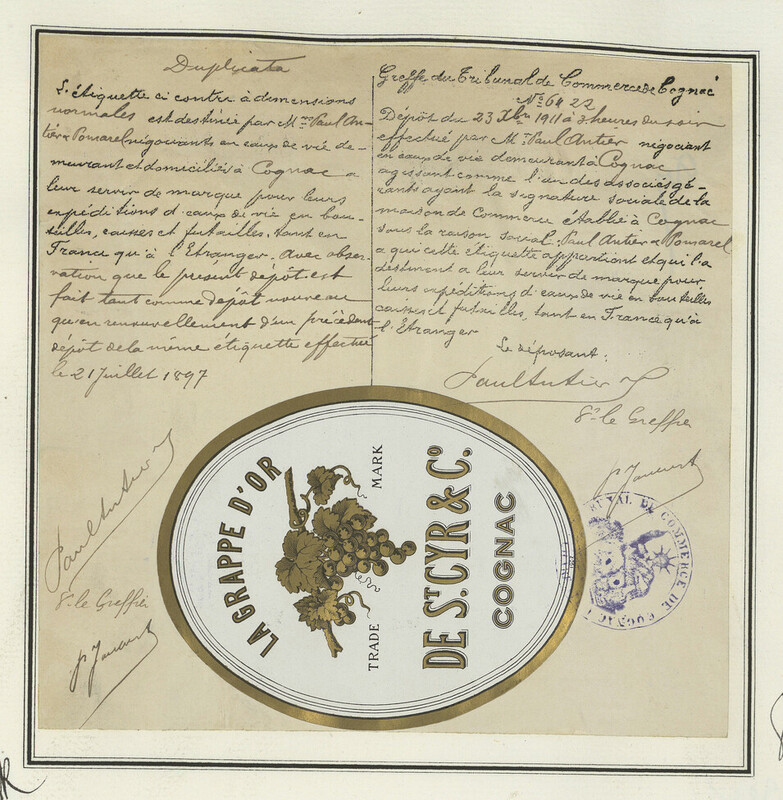 Duplicata
L'étiquette ci contre à dimensions
normales est destinée par M.rs Paul An-
tier & Pomarel négociants en eaux de vie de-
meurant et domiciliés à Cognac a
leur servir de marque pour leurs
expéditions d'eaux de vie en bou-
teilles, caisses et futailles, tant en
France qu'à l'Etranger. Avec obser-
vation que le présent dépôt est
fait tant comme dépôt nouveau
qu'en renouvellement d'un précédent
dépôt de la même étiquette effectué
le 21 Juillet 1897
Paul Antier
Pr le Greffier
Greffe du Tribunal de Commerce de Cognac
No 6422
Dépôt du 23 Xbre 1911 à 3 heures du soir
effectué par Mr Paul Antier négociant
en eaux de vie demeurant à Cognac
agissant comme l'un des associés gé-
rants ayant la signature sociale de la
maison de Commerce établie à Cognac
sous la raison social: Paul Antier & Pomarel
a qui cette étiquette appartient et qui l'a
destinent a leur servir de marque pour
leurs expéditions d'eaux de vie en bouteilles
caisses et futailles, tant en France qu'à
l'Etranger
Le déposant:
Paul Antier
Pr le Greffier
LA GRAPPE D'OR
TRADE MARK
DE ST. CYR & Co.
COGNAC
TRIBUNAL DE COMMERCE DE COGNAC